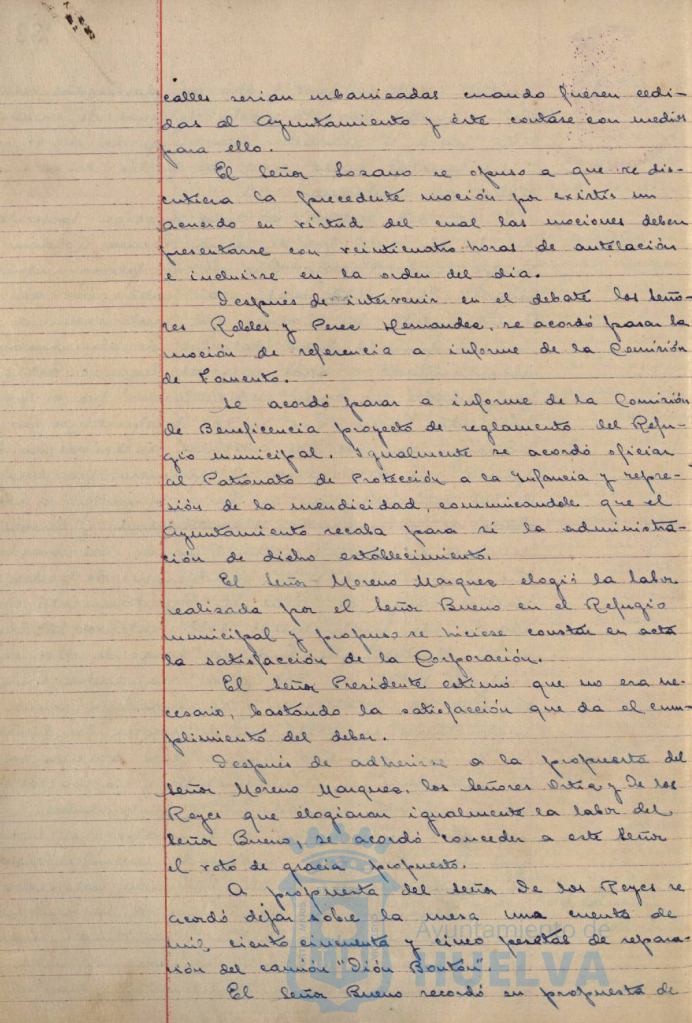 calles serían urbanizadas cuando fuesen cedi-
das al Ayuntamiento y éste contase con medios
para ello.
El Señor Lozano se opuso a que se dis-
cutiera la precedente moción por existir un
acuerdo en virtud del cual las mociones deben
presentarse con veinticuatro horas de antelación
e incluirse en la orden del dia.
Después de intervenir en el debate los Seño-
res Robles y Perez Hernandez, se acordó pasar la
moción de referencia a informe de la Comisión
de Fomento.
Se acordó pasar a informe de la Comisión
de Beneficencia proyecto de reglamento del Refu-
gio municipal. Igualmente se acordó oficiar
al Patronato de Protección a la Infancia y repre-
sión de la mendicidad, comunicandole que el
Ayuntamiento recaba para sí la administra-
ción de dicho establecimiento.
El Señor Moreno Marquez elogió la labor
realizada por el Señor Bueno en el Refugio
municipal y propuso se hiciese constar en acta
la satisfacción de la Corporación.
El Señor Presidente estimó que no era ne-
cesario, bastando la satisfacción que da el cum-
plimiento del deber.
Después de adherirse a la propuesta del
Señor Moreno Marquez, los Señores Ortiz y De los
Reyes que elogiaron igualmente la labor del
Señor Bueno, se acordó conceder a este Señor
el voto de gracia propuesto.
A propuesta del Señor De los Reyes se
acordó dejar sobre la mesa una cuenta de
mil ciento cincuenta y cinco pesetas de repara-
ción del camión "Dión Boutón".
El Señor Bueno recordó su propuesta de
Ayuntamiento de
HUELVA